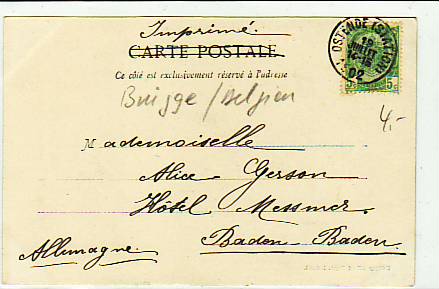 Imprimé.
CARTE POSTALE
Ce côté est exclusivement réservé à l'adresse
OSTENDE (STATION)
JUILLET
02
5c 5c
Brügge / Belgien
4,-
Mademoiselle
Alice Gerson
Hôtel Messmer.
Baden Baden.
Allemagne.